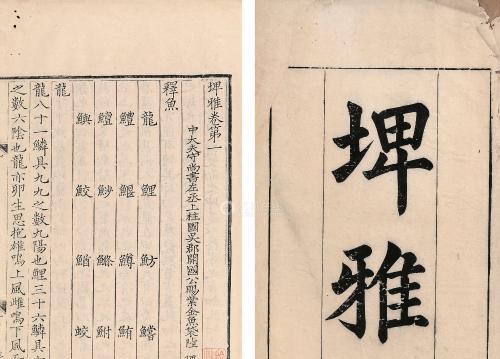 埤雅
埤雅卷第一
中大夫守尚書左丞上柱國吳郡開國公賜紫金魚袋陸
釋魚
龍 鯉 魴 鱨
鱧 鰋 鱒 鮪
鱣 魦 鰷 鮒
鱮 鮫 鰌 蛟
龍
龍八十一鱗具九九之數九陽也鯉三十六鱗具六
之數六陰也龍亦卵生思抱雄鳴上風雌鳴下風